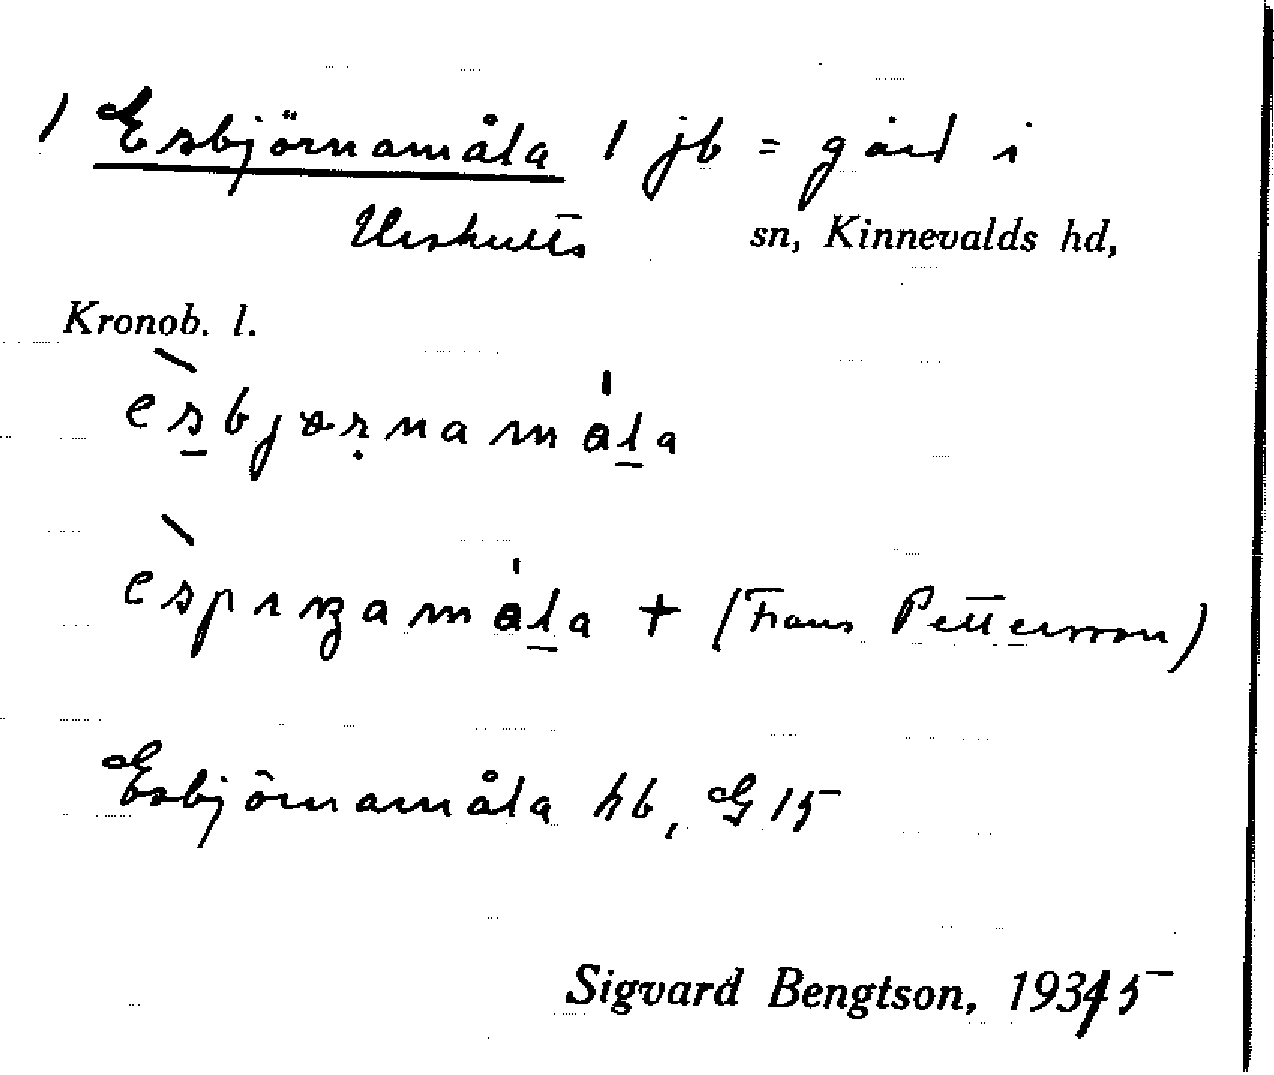 / Esbjörnamåla / jb = gård i
Urshults sn, Kinnevalds hd,
Kronob. l.
èsbjørnamåla
èspɪrzamåla + (Frans Pettersson)
Esbjörnamåla hb, G 15
Sigvard Bengtson, 1935